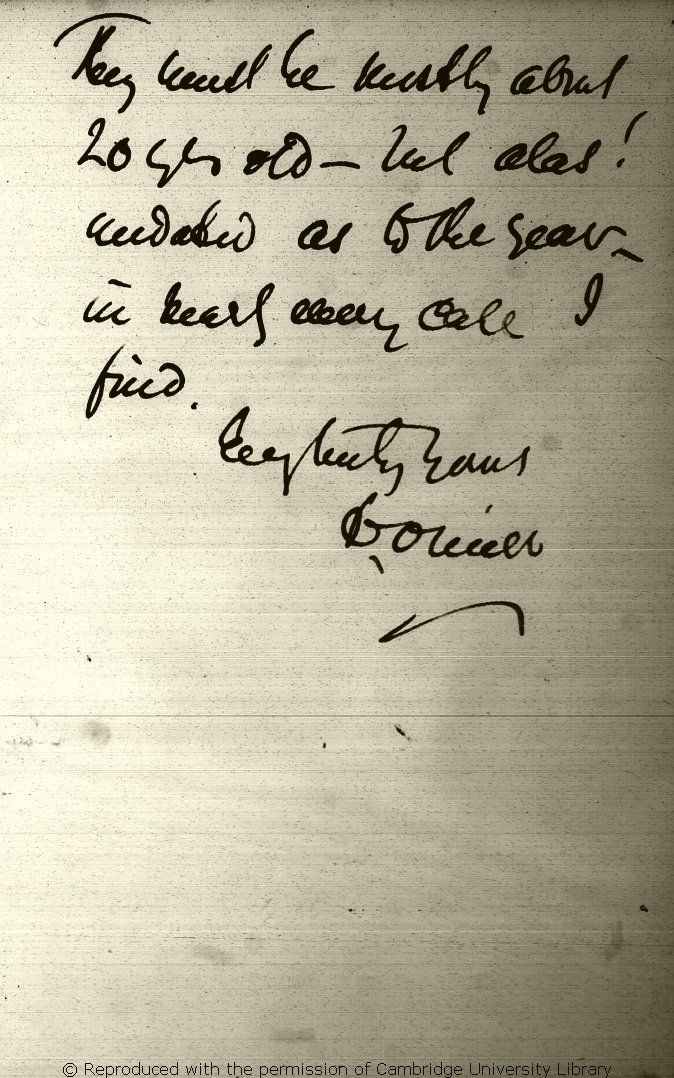 They must be mostly about
20 yrs old — but alas!
undated as to the year —
in nearly every case I
find.
Very truly yours
© Reproduced with the permission of Cambridge University Library